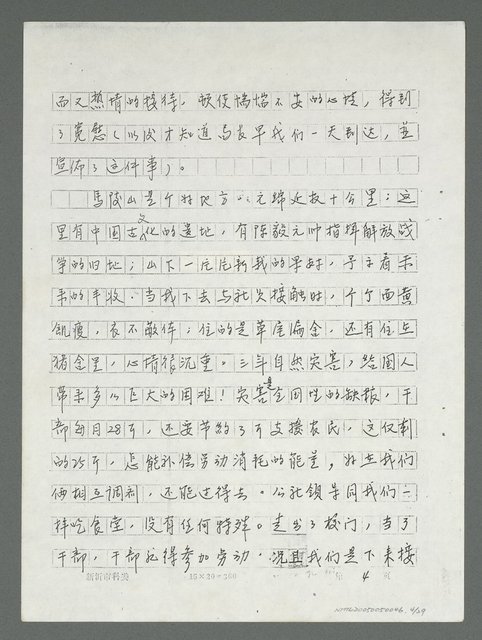 而又热情的接待，颇使惴惴不安的心情，得到
了宽慰（以后才知道马友早我们一天到达，并
宣佈了这件事）。
馬陵山是个好地方，公元绵延数十公里：这
里有中国古文化的遗址，有陈毅元帅指挥解放战
争的旧地；山下一片片新栽的果树，预示着未
来的丰收。当我下去与社员接触时，个个面黄
飢瘦，衣不敝体；住的是草屋漏舍，还有住在
猪舍里，心情很沉重。三年自然灾害，给国人
带来多么巨大的困难！灾害是全国性的缺粮，干
部每月28斤，还要节约3斤支援农民，这仅剩
的25斤，怎能补偿劳动消耗的能量，好在我们
俩相互调剂，还能过得去。公社领导同我们一
样吃食堂，没有任何特殊。走出了校门，当了
干部，干部就得参加劳动。况且我们是下来接
新沂市科委 15×20=300 第 4 页
NMTL20050050046 4/29